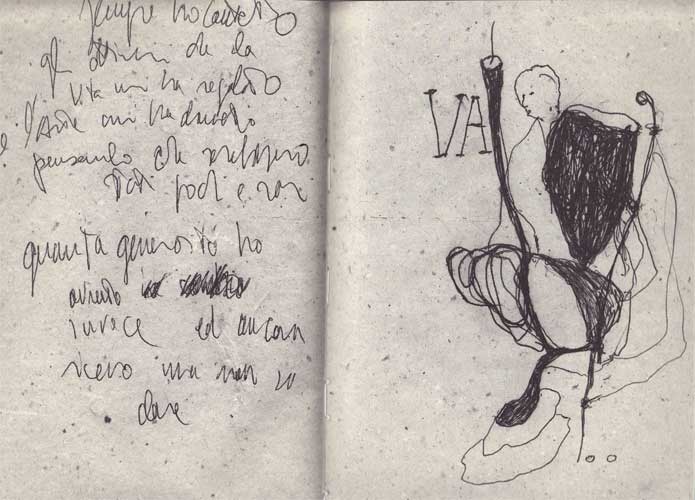 sempre ho
gli attimi che la
vita mi ha regalato
e l'Arte mi ha
pensando che
stati pochi e rari
quanta generosità ho
avuto
invece ed ancora
ricevo ma non so
dare
VA